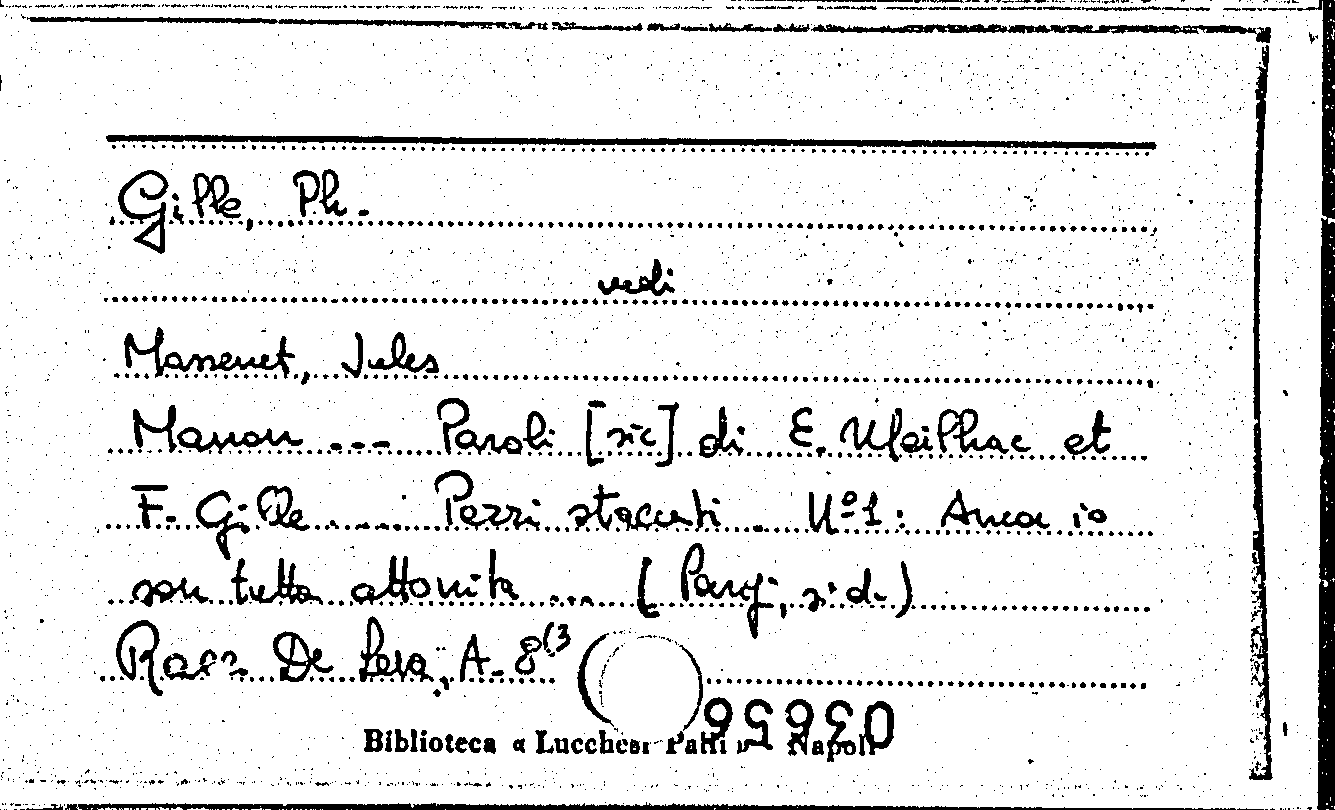 Gille, Ph.
vedi
Massenet, Jules
Manon ... Paroli [sic] di E. Meilhac et
F. Gille .... Pezzi staccati. N°1: Ancor io
son tutta attonita ... (Parigi, s.d.)
Racc. De Lera, A. 8(3
Biblioteca « Lucchesi Palli » - Napoli